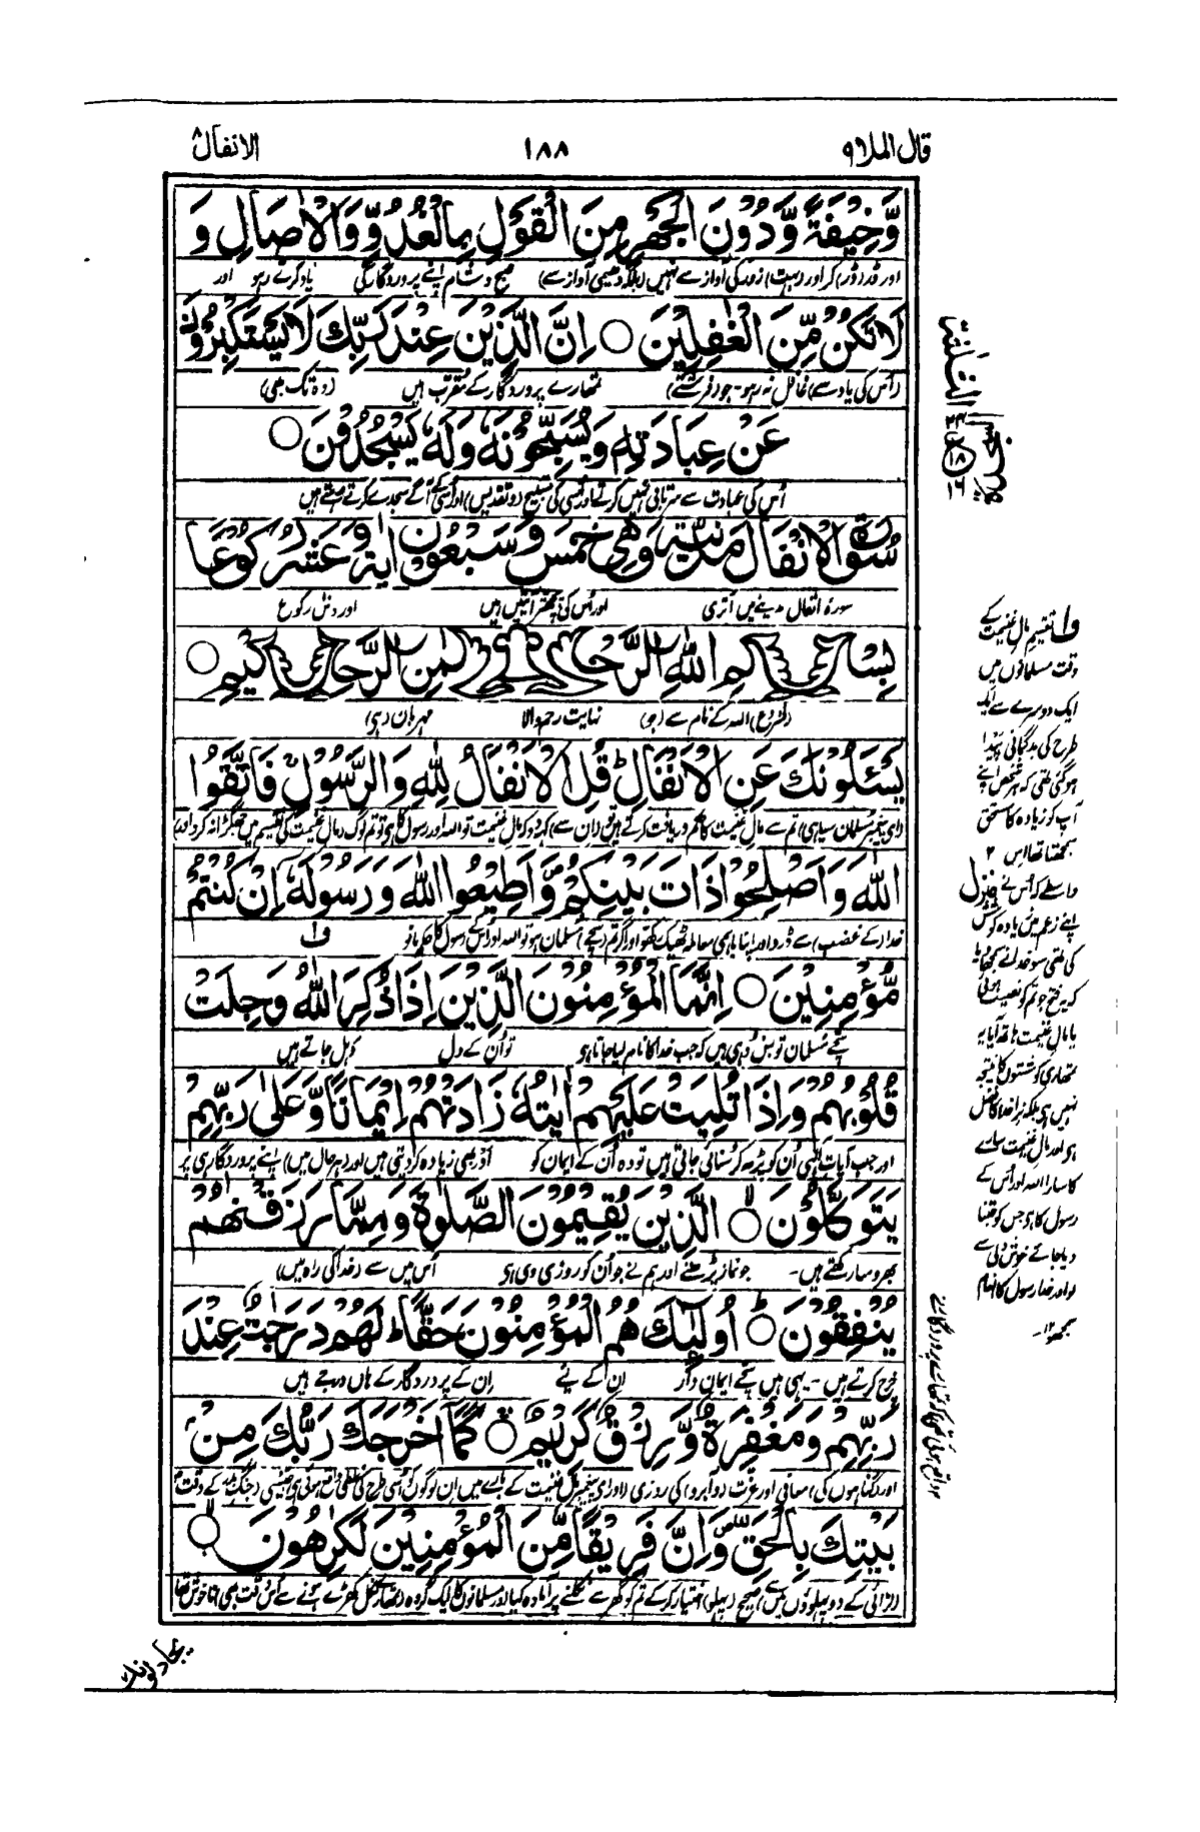 قال الملا ٩
١٨٨
الانفال ٨
وَّخِيْفَةً وَّدُوْنَ الْجَهْرِ مِنَ الْقَوْلِ بِالْغُدُوِّ وَالْاٰصَالِ وَ
اور ڈر (ڈر) کر اور (بہت) زور کی آواز سے نہیں (بلکہ دھیمی آواز سے) صبح و شام اپنے پروردگار کی یاد کرتے رہو اور
لَا تَكُنْ مِّنَ الْغٰفِلِيْنَ ○ اِنَّ الَّذِيْنَ عِنْدَ رَبِّكَ لَا يَسْتَكْبِرُوْنَ
(اُس کی یاد سے) غافل نہ رہو۔ جو (فرشتے) تمھارے پروردگار کے مقرب ہیں (وہ تک بھی)
عَنْ عِبَادَتِهٖ وَيُسَبِّحُوْنَهٗ وَلَهٗ يَسْجُدُوْنَ ○
اُس کی عبادت سے سرتابی نہیں کرتے اور اُسی کی تسبیح (و تقدیس) اور اُسی کے آگے سجدے کرتے رہتے ہیں
سُوْرَةُ الْاَنْفَالِ مَدَنِيَّةٌ وَّهِيَ خَمْسٌ وَّسَبْعُوْنَ اٰيَةً وَّعَشْرُ رُكُوْعًا
سورۂ انفال مدینے میں اُتری اور اُس کی پچھتر آیتیں ہیں اور دس رکوع
بِسْمِ اللّٰهِ الرَّحْمٰنِ الرَّحِيْمِ ○
(شروع) اللہ کے نام سے (جو) نہایت رحم والا مہربان (ہی)
يَسْـَٔلُوْنَكَ عَنِ الْاَنْفَالِ ؕ قُلِ الْاَنْفَالُ لِلّٰهِ وَالرَّسُوْلِ ۚ فَاتَّقُوا
(ای پیغمبر مسلمان سپاہی) تم سے مال غنیمت کا حکم دریافت کرتے ہیں تو (ان سے) کہدو کہ مال غنیمت تو اللہ اور رسول کا ہی تو تم لوگ (مال غنیمت کی تقسیم میں جھگڑا نہ کرو اور)
اللّٰهَ وَاَصْلِحُوْا ذَاتَ بَيْنِكُمْ ۪ وَاَطِيْعُوا اللّٰهَ وَرَسُوْلَهٗٓ اِنْ كُنْتُمْ
خدا (کے غضب) سے ڈرو اور اپنا باہمی معاملہ ٹھیک رکھو اور اگر تم (سچے) مسلمان ہو تو اللہ اور اُس کے رسول کا حکم مانو ف۱
مُّؤْمِنِيْنَ ○ اِنَّمَا الْمُؤْمِنُوْنَ الَّذِيْنَ اِذَا ذُكِرَ اللّٰهُ وَجِلَتْ
سچے مسلمان تو بس وُہی ہیں کہ جب خدا کا نام لیا جاتا ہی تو اُن کے دل دہل جاتے ہیں
قُلُوْبُهُمْ وَاِذَا تُلِيَتْ عَلَيْهِمْ اٰيٰتُهٗ زَادَتْهُمْ اِيْمَانًا وَّعَلٰى رَبِّهِمْ
اور جب آیات الٰہی اُن کو پڑھ کر سُنائی جاتی ہیں تو وہ اُن کے ایمان کو اور بھی زیادہ کر دیتی ہیں اور (ہر حال میں) اپنے پروردگار ہی پر
يَتَوَكَّلُوْنَ ○ الَّذِيْنَ يُقِيْمُوْنَ الصَّلٰوةَ وَمِمَّا رَزَقْنٰهُمْ
بھروسا رکھتے ہیں۔ جو نماز پڑھتے اور ہم نے جو اُن کو روزی دی ہی اُس میں سے (خدا کی راہ میں)
يُنْفِقُوْنَ ○ اُولٰٓئِكَ هُمُ الْمُؤْمِنُوْنَ حَقًّا ؕ لَهُمْ دَرَجٰتٌ عِنْدَ
خرچ کرتے ہیں۔ یہی ہیں سچے ایمان دار اِن کے لیے اِن کے پروردگار کے ہاں درجے ہیں
رَبِّهِمْ وَمَغْفِرَةٌ وَّرِزْقٌ كَرِيْمٌ ○ كَمَآ اَخْرَجَكَ رَبُّكَ مِنْۢ
اور (گناہوں کی) معافی اور عزت (و آبرو) کی روزی (اور ای پیغمبر مال غنیمت کے بارے میں ان لوگوں کو اُسی طرح کی غلطی واقع ہوئی ہی جیسی (جنگ بدر کے وقت)
بَيْتِكَ بِالْحَقِّ ۪ وَاِنَّ فَرِيْقًا مِّنَ الْمُؤْمِنِيْنَ لَكٰرِهُوْنَ ○
(لڑائی کے دو پہلوؤں میں سے) صحیح (پہلو) اختیار کر کے تم کو گھر سے نکلنے پر آمادہ کیا اور مسلمانوں کا ایک گروہ
ف۱ تقسیم مال غنیمت کے
وقت مسلمانوں میں
ایک دوسرے سے ایک
طرح کی بدگمانی پیدا
ہو گئی تھی کہ ہر شخص اپنے
آپ کو زیادہ کا مستحق
سمجھتا تھا اس
واسطے کہ اُس نے
اپنے زعم میں زیادہ کوشش
کی تھی سو خدا نے سمجھا دیا
کہ یہ فتح جو تم کو نصیب ہوئی
یا مال غنیمت ہاتھ آیا یہ
تمھاری کوششوں کا نتیجہ
نہیں ہی بلکہ نرا خدا کا فضل
ہی اور مال غنیمت سارے
کا سارا اللہ اور اُس کے
رسول کا ہی جس کو جتنا
دیا جائے خوش دلی سے
لو اور خدا رسول کا انعام
سمجھو ۱۲۔
منزل ۲